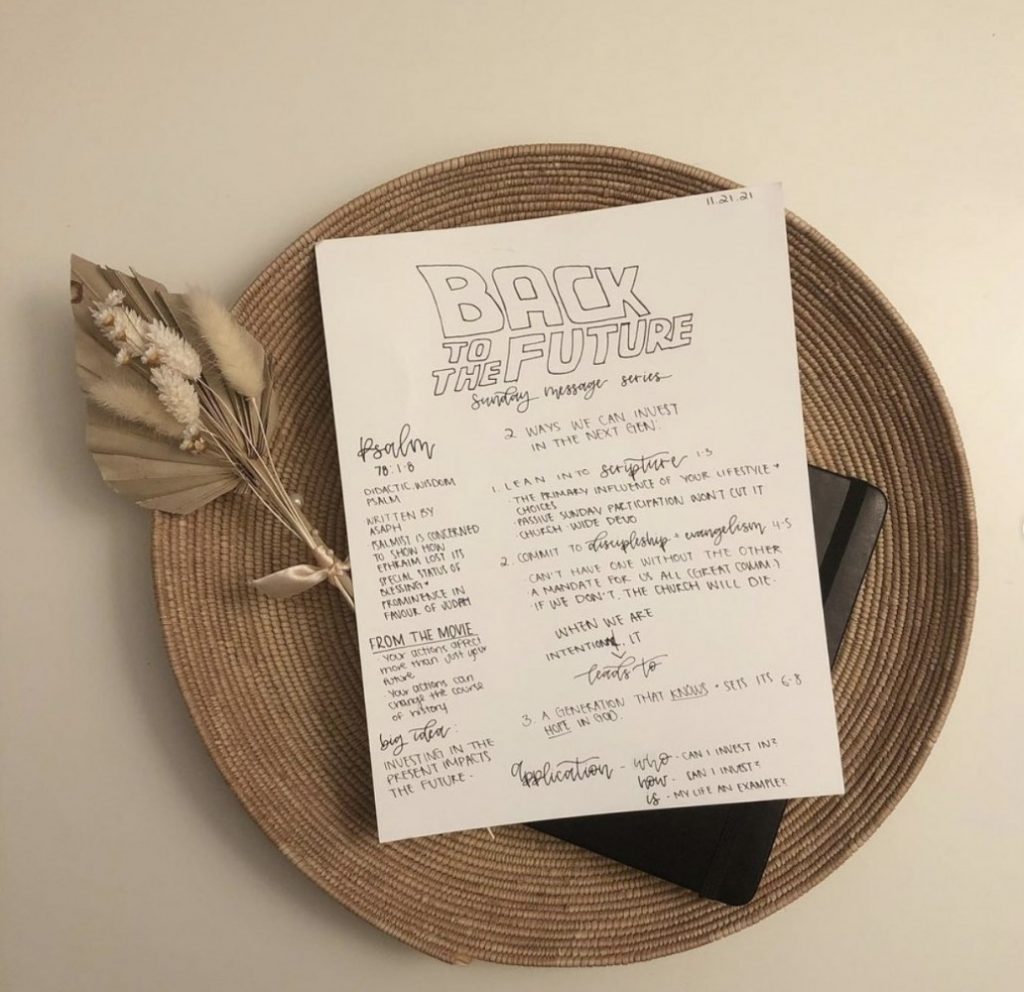 11.21.21
BACK
TO
THE FUTURE
Sunday message series
Psalm
78:1-8
DIDACTIC WISDOM
PSALM
WRITTEN BY
ASAPH
PSALMIST IS CONCERNED
TO SHOW HOW
EPHRAIM LOST ITS
SPECIAL STATUS OF
BLESSING +
PROMINENCE IN
FAVOUR OF JUDAH
FROM THE MOVIE
· Your actions affect
more than just your
future
· Your actions can
change the course
of history
big idea:
INVESTING IN THE
PRESENT IMPACTS
THE FUTURE.
2 WAYS WE CAN INVEST
IN THE NEXT GEN:
1. LEAN INTO scripture 1-3
· THE PRIMARY INFLUENCE OF YOUR LIFESTYLE +
CHOICES
· PASSIVE SUNDAY PARTICIPATION WON'T CUT IT
· CHURCH-WIDE DEVO
2. COMMIT TO discipleship + evangelism 4-5
· CAN'T HAVE ONE WITHOUT THE OTHER
· A MANDATE FOR US ALL (GREAT COMM)
· IF WE DON'T, THE CHURCH WILL DIE.
WHEN WE ARE
INTENTIONAL, IT
leads to
3. A GENERATION THAT KNOWS + SETS ITS 6-8
HOPE IN GOD.
application - who - CAN I INVEST IN?
how - CAN I INVEST?
is - MY LIFE AN EXAMPLE?